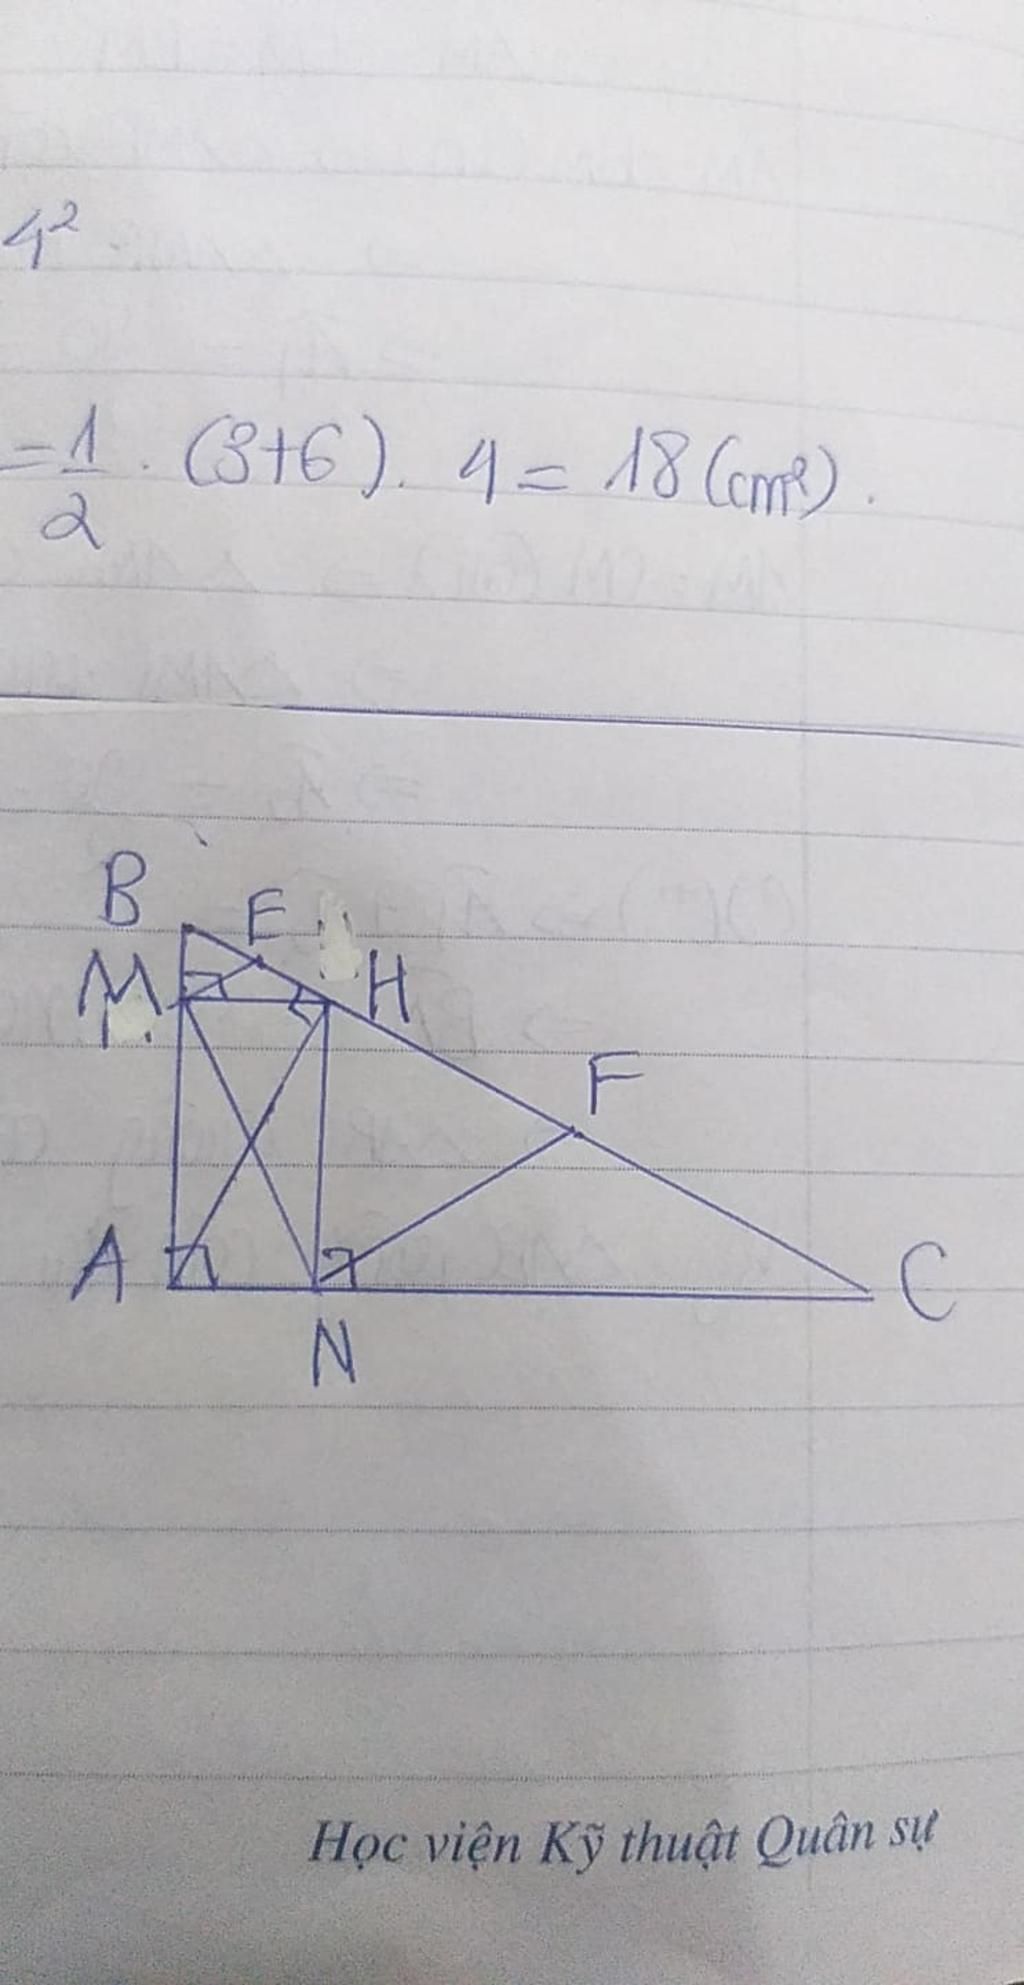 4²
= 1/2 . (3+6). 4 = 18 (cm²).
B
E
M
H
F
A
C
N
Học viện Kỹ thuật Quân sự